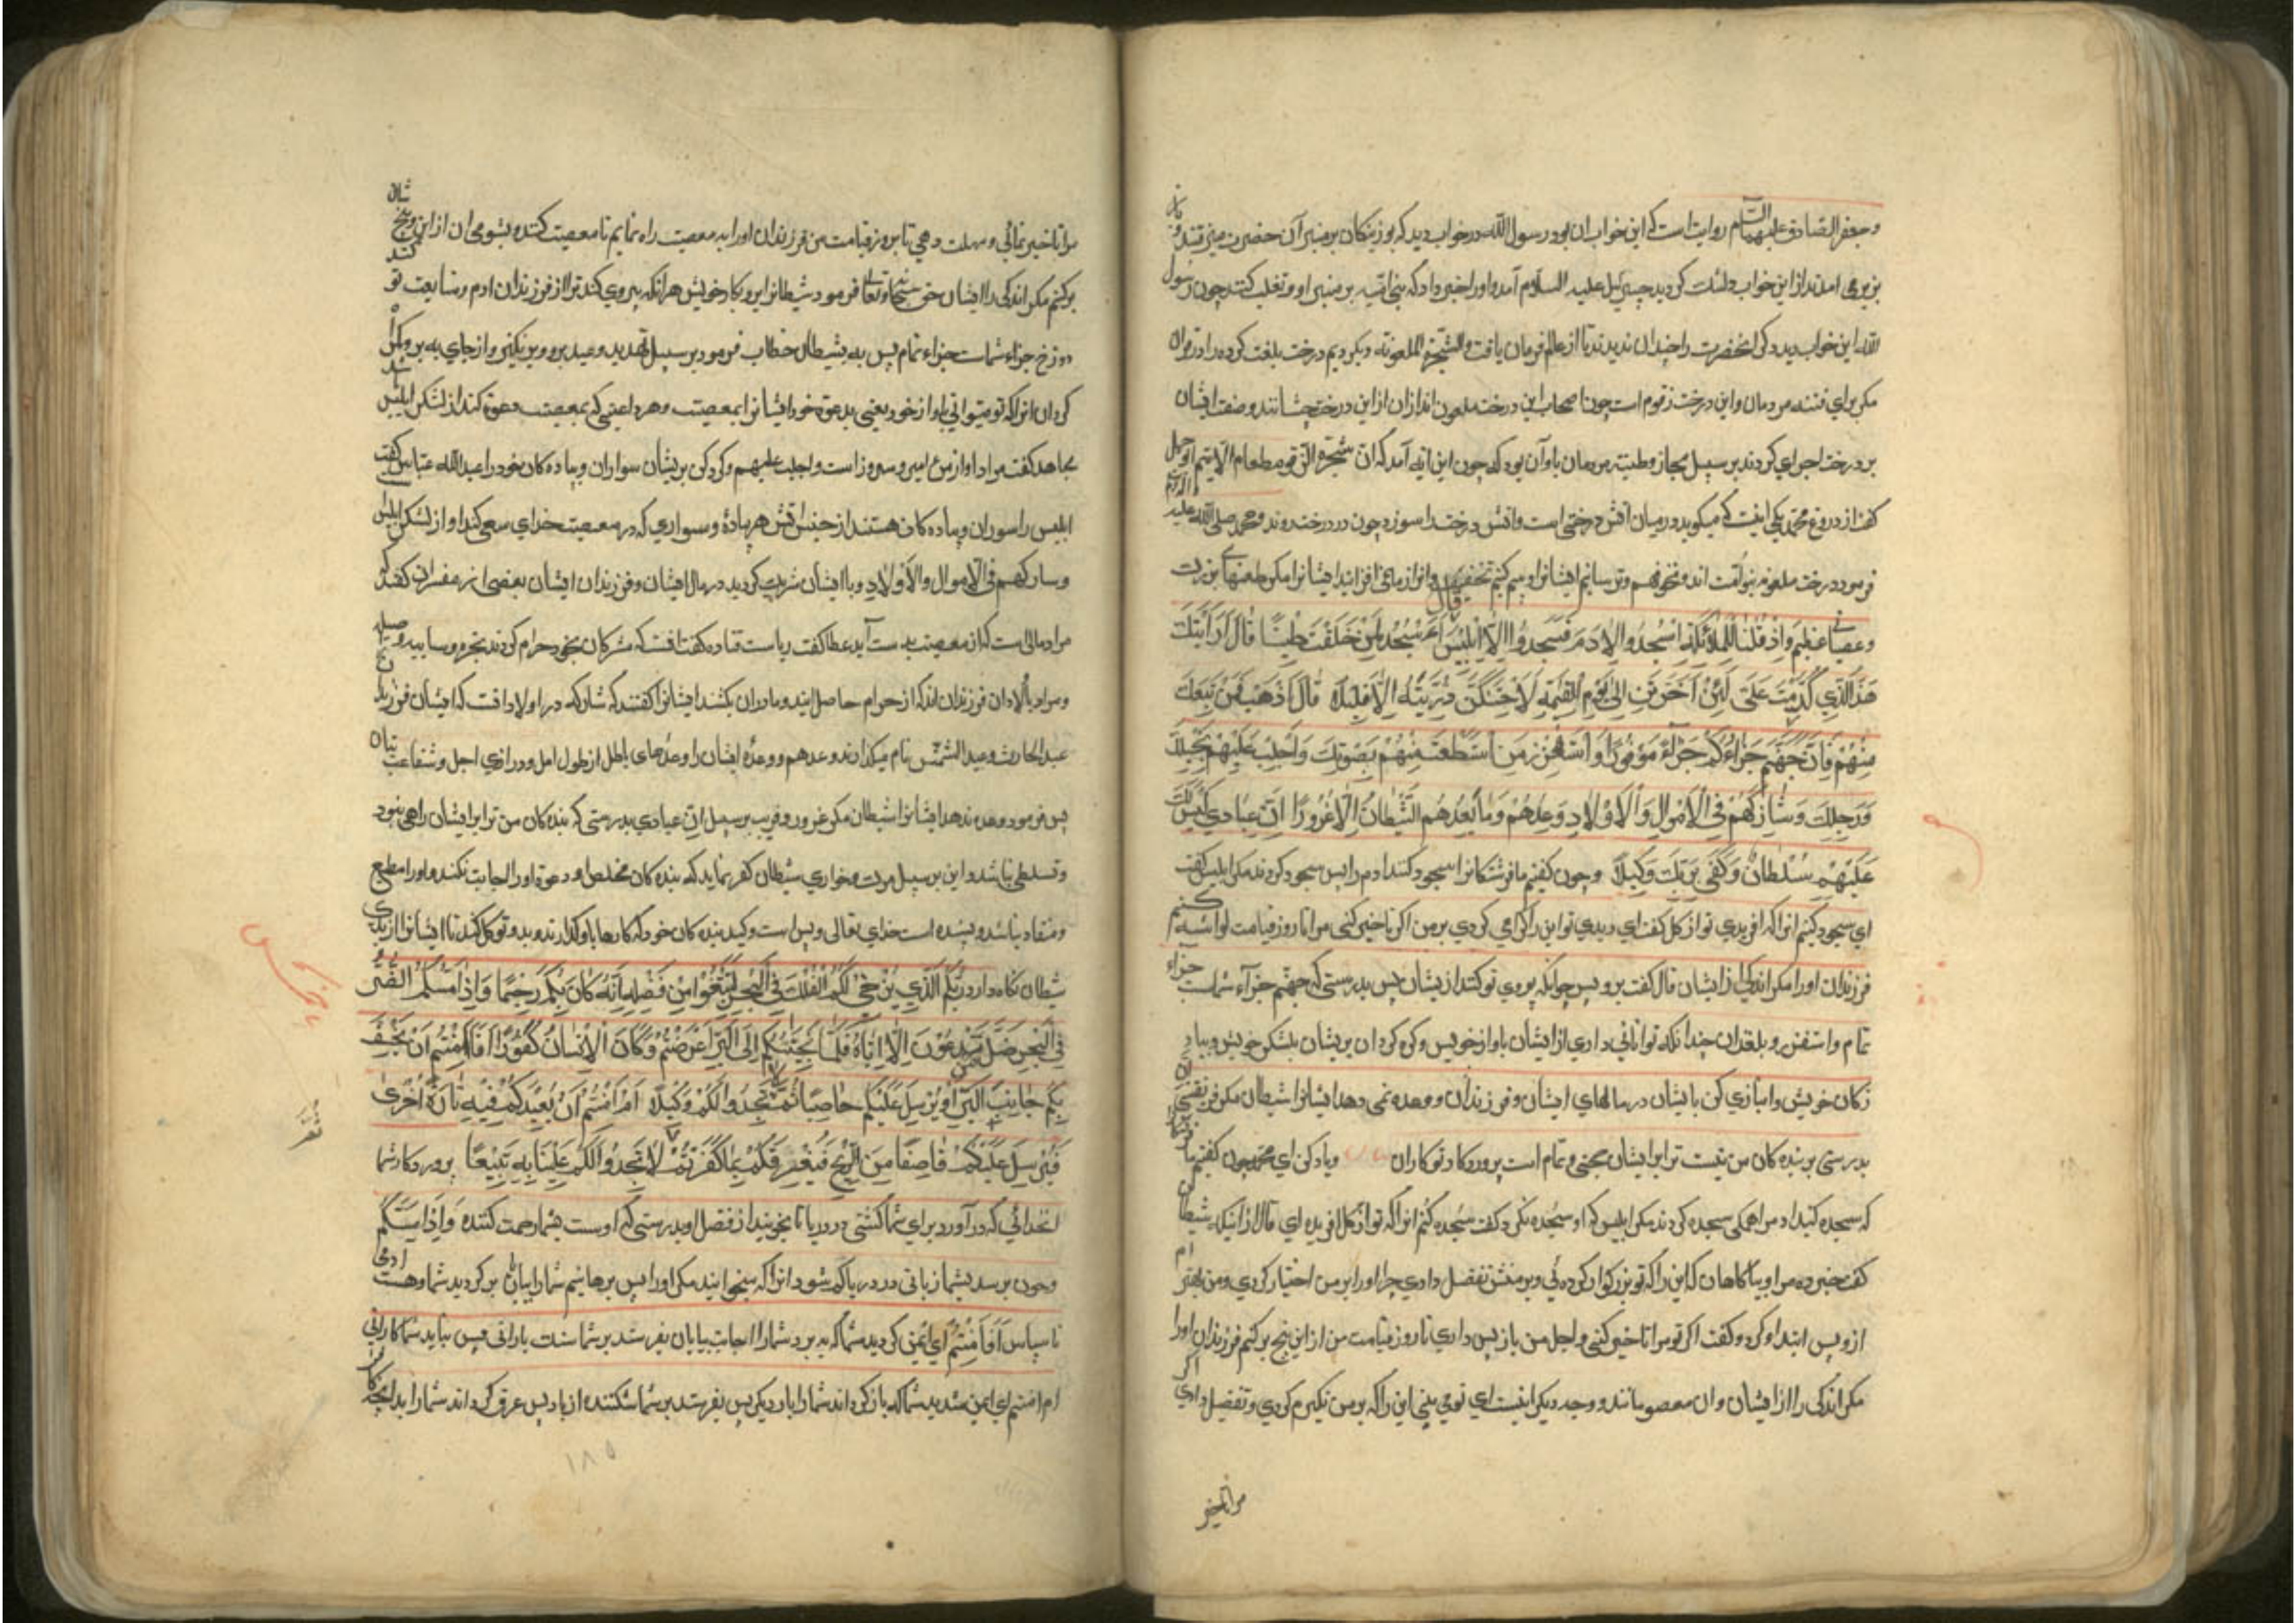 وجعفر الصادق علیهما السلام روایت است که این خواب ان بود رسول الله در خواب دید که بوزینکان بر منبر آن حضرت میرفتند و
بزیر می امدند از این خواب دلتنك کردید جبرئیل علیه السلام آمد و اورا خبر داد که بنی امیه بر منبر او تغلب کنند چون رسول
الله این خواب دید دکر انحضرت را خندان ندیدند تا از عالم فرمان یافت والشجرة الملعونة ونکردیم درخت بلعنت کرده را در قران
مکر برای فتنه مردمان واین درخت زقوم است چون اصحاب این درخت ملعون اند ازان از این درخت چشانند وصفت ایشان
بر درخت اجرای کردند بر سبیل مجاز وطنیه مردمان باو آن بود که چون این ایه آمد که ان شجرة الزقوم طعام الاثیم ابو جهل
کفت از دروغ محمد یکی اینست که میکوید در میان آتش درختی است واتش درخت را سوزد چون در درخت روید ومحمد صلی الله علیه واله
فرمود درخت ملعونه بنو امیه اند ونخوفهم وترسانیم ایشانرا وبیم کنیم تخفیف وانرا زیادتی افزاید ایشانرا مکر طغیانهای بزرك
وعصیانی عظیم وَاِذْ قُلْنَا لِلْمَلٰئِکَةِ اسْجُدُوا لِاٰدَمَ فَسَجَدُوا اِلَّا اِبْلِیسَ قَالَ ءَاَسْجُدُ لِمَنْ خَلَقْتَ طِینًا قَالَ اَرَاَیْتَكَ
هَذَا الَّذِی کَرَّمْتَ عَلَیَّ لَئِنْ اَخَّرْتَنِ اِلٰی یَوْمِ الْقِیٰمَةِ لَاَحْتَنِکَنَّ ذُرِّیَّتَهُ اِلَّا قَلِیلًا قَالَ اذْهَبْ فَمَنْ تَبِعَكَ
مِنْهُمْ فَاِنَّ جَهَنَّمَ جَزَاؤُکُمْ جَزَاءً مَوْفُورًا وَاسْتَفْزِزْ مَنِ اسْتَطَعْتَ مِنْهُمْ بِصَوْتِكَ وَاَجْلِبْ عَلَیْهِمْ بِخَیْلِكَ
وَرَجِلِكَ وَشَارِکْهُمْ فِی الْاَمْوَالِ وَالْاَوْلَادِ وَعِدْهُمْ وَمَا یَعِدُهُمُ الشَّیْطَانُ اِلَّا غُرُورًا اِنَّ عِبَادِی لَیْسَ لَكَ
عَلَیْهِمْ سُلْطَانٌ وَکَفٰی بِرَبِّكَ وَکِیلًا وچون کفتیم ما فرشتکانرا سجود کنند ادم را پس سجود کردند مکر ابلیس کفت
ای سجود کنیم انرا که افریدی تو از کل کفت ای دیدی تو این را کرامی کردی بر من اکر تاخیر کنی مرا تا روز قیامت
فرزندان اورا مکر اندکی از ایشان قال کفت برو پس هرانکه پیروی تو کند از یشان پس بدرستی که جهنم جزاء شماست جزاء
تمام واستفزز وبلغزان چندانکه توانائی داری از ایشان باواز خویش وکرد کردان بریشان بلشکر خویش وپیاد
کان خویش وانبازی کن با یشان در مالهای ایشان وفرزندان ووعده نمی دهد ایشانرا شیطان مکر فریفتنی
بدرستی بر بنده کان من نیست ترا بر ایشان حجتی وتمام است پروردکار تو کاران ویاد کن ای محمد چون کفتیم ما فرشتکانرا
که سجده کنید ادم را همکی سجده کردند مکر ابلیس که او سجده نکرد کفت سجده کنم انرا که تو از کل افریده ای قال ارایتك شیطان
کفت خبر ده مرا وبیاکاهان که این را که تو بزرکوار کرده ئی وبر منش تفضیل دادی چرا اورا بر من اختیار کردی ومن بهترم
از و پس ابتدا کرد وکفت اکر تو مرا تاخیر کنی واجل من باز پس داری تا روز قیامت من از این بیخ برکنم فرزندان اورا
مکر اندکی را از ایشان وان معصومانند ووجه دیکر اینست ای تو می بینی این را که بر من تکریم کردی وتفضیل دادی اکر
مرا تاخیر
مرا تاخیر نمائی ومهلت دهی تا بروز قیامت من فرزندان اورا بمعصیت راه نمایم تا معصیت کنند وبشومی ان از این بیخ شان
برکنم مکر اندکی را ایشان حق سبحانه وتعالی فرمود شیطانرا برو کار خویش هرانکه پیروی کند ترا از فرزندان ادم ومتابعت تو کند
دوزخ جزاء شماست جزاء تمام پس به شیطان خطاب فرمود بر سبیل تهدید ووعید برو وبر نکیز واز جای به بر وکمراه
کردان انرا که تو میتوانی باواز خود یعنی بدعوة خود ایشانرا بمعصیت وهر داعی که بمعصیت دعوة کند از لشکر ابلیس باشد
مجاهد کفت مراد اواز مزامیر وسرود است واجلب علیهم وکرد کن بریشان سواران وپیاده کان خود را عبد الله عباس کفت
ابلیس را سواران وپیاده کان هستند از جن وانس هر پیاده وسواری که در معصیت خدای سعی کند او از لشکر ابلیس
وشارکهم فی الاموال والاولاد وبا ایشان شریك کردید در مال ایشان وفرزندان ایشان بعضی از مفسران کفتند که
مراد مالی است که از معصیت بدست آید عطا کفت ریاست قتاده کفت انست که مشرکان بخود حرام کردند بحیره وسایبه ووصیله
ومراد باولاد ان فرزندان اند که از حرام حاصل ایند ومادران بکشند ایشانرا کفتند که شارکه در اولاد انست که ایشان فرزند
عبد الحارث وعبد الشمس نام میکذارند وعدهم ووعدۀ ایشان را وعدهای باطل از طول امل ودرازی اجل وشفاعت بتان
پس فرمود وعده ندهد ایشانرا شیطان مکر غرور وفریب بر سبیل ان عبادی بدرستی که بنده کان من ترا بر ایشان راهی نبود
وتسلطی نباشد واین بر سبیل مرمت وخواری شیطان کفر نماید که بنده کان مخلص او دعوة اورا اجابت نکنند واورا مطیع
ومنقاد نباشد وبسنده است خدای تعالی وبس است وکید بنده کان خود که کارها باو کذارند وبدو توکل کنند تا ایشانرا از بدی
شیطان نکاه دارد رَبُّکُمُ الَّذِی یُزْجِی لَکُمُ الْفُلْكَ فِی الْبَحْرِ لِتَبْتَغُوا مِنْ فَضْلِهِ اِنَّهُ کَانَ بِکُمْ رَحِیمًا وَاِذَا مَسَّکُمُ الضُّرُّ
فِی الْبَحْرِ ضَلَّ مَنْ تَدْعُونَ اِلَّا اِیَّاهُ فَلَمَّا نَجّٰیکُمْ اِلَی الْبَرِّ اَعْرَضْتُمْ وَکَانَ الْاِنْسَانُ کَفُورًا اَفَاَمِنْتُمْ اَنْ یَخْسِفَ
بِکُمْ جَانِبَ الْبَرِّ اَوْ یُرْسِلَ عَلَیْکُمْ حَاصِبًا ثُمَّ لَا تَجِدُوا لَکُمْ وَکِیلًا اَمْ اَمِنْتُمْ اَنْ یُعِیدَکُمْ فِیهِ تَارَةً اُخْرٰی
فَیُرْسِلَ عَلَیْکُمْ قَاصِفًا مِنَ الرِّیحِ فَیُغْرِقَکُمْ بِمَا کَفَرْتُمْ ثُمَّ لَا تَجِدُوا لَکُمْ عَلَیْنَا بِهِ تَبِیعًا پروردکار شما
انخدائی که در آورد برای شما کشتی در دریا تا بجویند از فضل او بدرستی که اوست بشما رحمت کننده وَاِذَا مَسَّکُمْ
وچون برسد بشما زیانی در دریا کم شود انرا که میخوانید مکر اورا پس برهانیم شما را بیابان برکردید شما وهست ادمی
ناسپاس اَفَاَمِنْتُمْ ای ایمن کردید شما که به برد شما را اجانب بیابان بفرستد بر شما سنك بارانی پس نیابید شما کارانی
ام امنتم ای ایمن شدید شما که باز کرداند شما را بار دیکر پس بفرستد بر شما شکننده از باد پس غرق کرداند شما را بدانچه
١٨٥